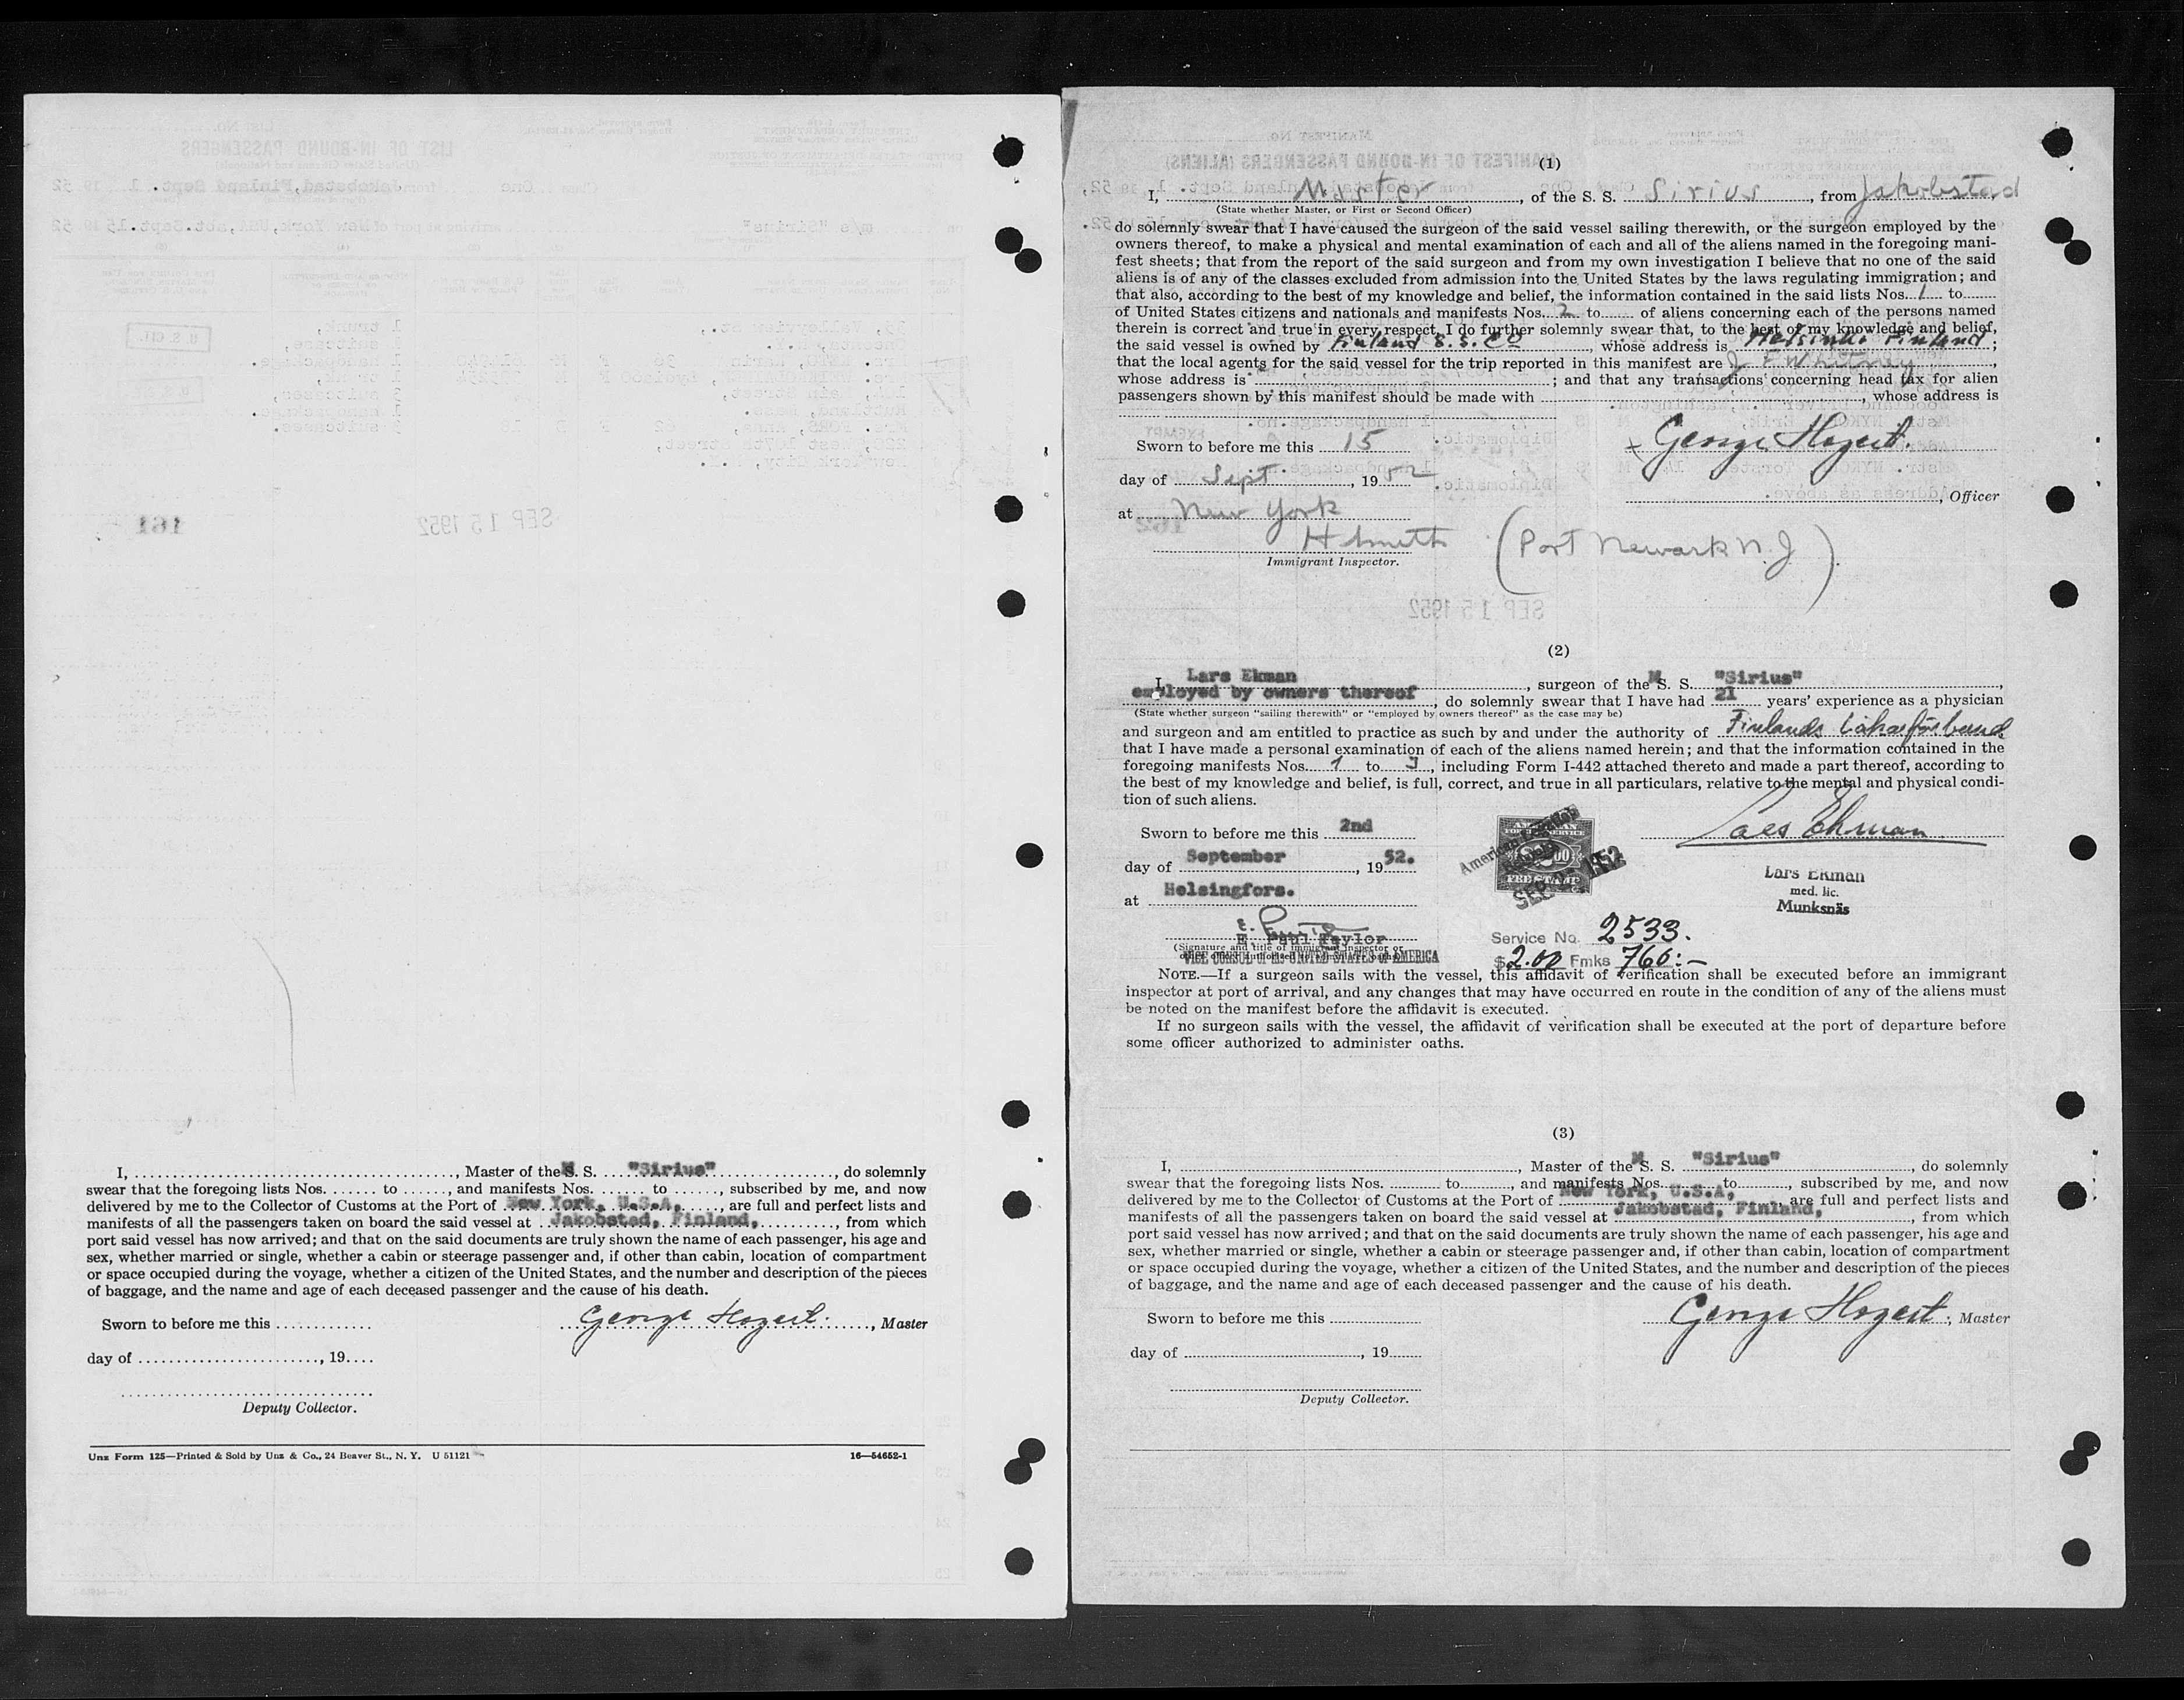 I, ........, Master of the M. S. S. "Sirius" ........, do solemnly
swear that the foregoing lists Nos. ...... to ......, and manifests Nos. ...... to ......, subscribed by me, and now
delivered by me to the Collector of Customs at the Port of New York, U.S.A, ......, are full and perfect lists and
manifests of all the passengers taken on board the said vessel at Jakobstad, Finland, ........, from which
port said vessel has now arrived; and that on the said documents are truly shown the name of each passenger, his age and
sex, whether married or single, whether a cabin or steerage passenger and, if other than cabin, location of compartment
or space occupied during the voyage, whether a citizen of the United States, and the number and description of the pieces
of baggage, and the name and age of each deceased passenger and the cause of his death.
Sworn to before me this ............ George Hogert., Master
day of ........................, 19....
Deputy Collector.
Unz Form 125—Printed & Sold by Unz & Co., 24 Beaver St., N. Y. U 51121 16—54652-1
(1)
I, Master, of the S. S. Sirius, from Jakobstad
(State whether Master, or First or Second Officer)
do solemnly swear that I have caused the surgeon of the said vessel sailing therewith, or the surgeon employed by the
owners thereof, to make a physical and mental examination of each and all of the aliens named in the foregoing mani-
fest sheets; that from the report of the said surgeon and from my own investigation I believe that no one of the said
aliens is of any of the classes excluded from admission into the United States by the laws regulating immigration; and
that also, according to the best of my knowledge and belief, the information contained in the said lists Nos. 1 to ......
of United States citizens and nationals and manifests Nos. 2 to ...... of aliens concerning each of the persons named
therein is correct and true in every respect. I do further solemnly swear that, to the best of my knowledge and belief,
the said vessel is owned by Finland S.S. Co, whose address is Helsinki Finland;
that the local agents for the said vessel for the trip reported in this manifest are J F Whitney,
whose address is ........; and that any transactions concerning head tax for alien
passengers shown by this manifest should be made with ........, whose address is
Sworn to before me this 15 George Hogert.
day of Sept, 1952 ........, Officer
at New York
H Smith (Port Newark N.J)
Immigrant Inspector.
SEP 15 1952
(2)
I, Lars Ekman, surgeon of the M. S. S. "Sirius",
employed by owners thereof, do solemnly swear that I have had 21 years' experience as a physician
(State whether surgeon "sailing therewith" or "employed by owners thereof" as the case may be)
and surgeon and am entitled to practice as such by and under the authority of Finlands Läkarförbund
that I have made a personal examination of each of the aliens named herein; and that the information contained in the
foregoing manifests Nos. 1 to 3, including Form I-442 attached thereto and made a part thereof, according to
the best of my knowledge and belief, is full, correct, and true in all particulars, relative to the mental and physical condi-
tion of such aliens.
Sworn to before me this 2nd Lars Ekman
day of September, 1952.
Lars Ekman
med. lic.
Munksnäs
at Helsingfors.
E. Paul Taylor
(Signature and title of immigrant inspector or
VICE CONSUL OF THE UNITED STATES OF AMERICA
Service No. 2533.
$2.00 Fmks 760:—
NOTE.—If a surgeon sails with the vessel, this affidavit of verification shall be executed before an immigrant
inspector at port of arrival, and any changes that may have occurred en route in the condition of any of the aliens must
be noted on the manifest before the affidavit is executed.
If no surgeon sails with the vessel, the affidavit of verification shall be executed at the port of departure before
some officer authorized to administer oaths.
(3)
I, ........, Master of the M. S. S. "Sirius" ........, do solemnly
swear that the foregoing lists Nos. ...... to ......, and manifests Nos. ...... to ......, subscribed by me, and now
delivered by me to the Collector of Customs at the Port of New York, U.S.A, are full and perfect lists and
manifests of all the passengers taken on board the said vessel at Jakobstad, Finland, ........, from which
port said vessel has now arrived; and that on the said documents are truly shown the name of each passenger, his age and
sex, whether married or single, whether a cabin or steerage passenger and, if other than cabin, location of compartment
or space occupied during the voyage, whether a citizen of the United States, and the number and description of the pieces
of baggage, and the name and age of each deceased passenger and the cause of his death.
Sworn to before me this ............ George Hogert, Master
day of ............, 19......
Deputy Collector.